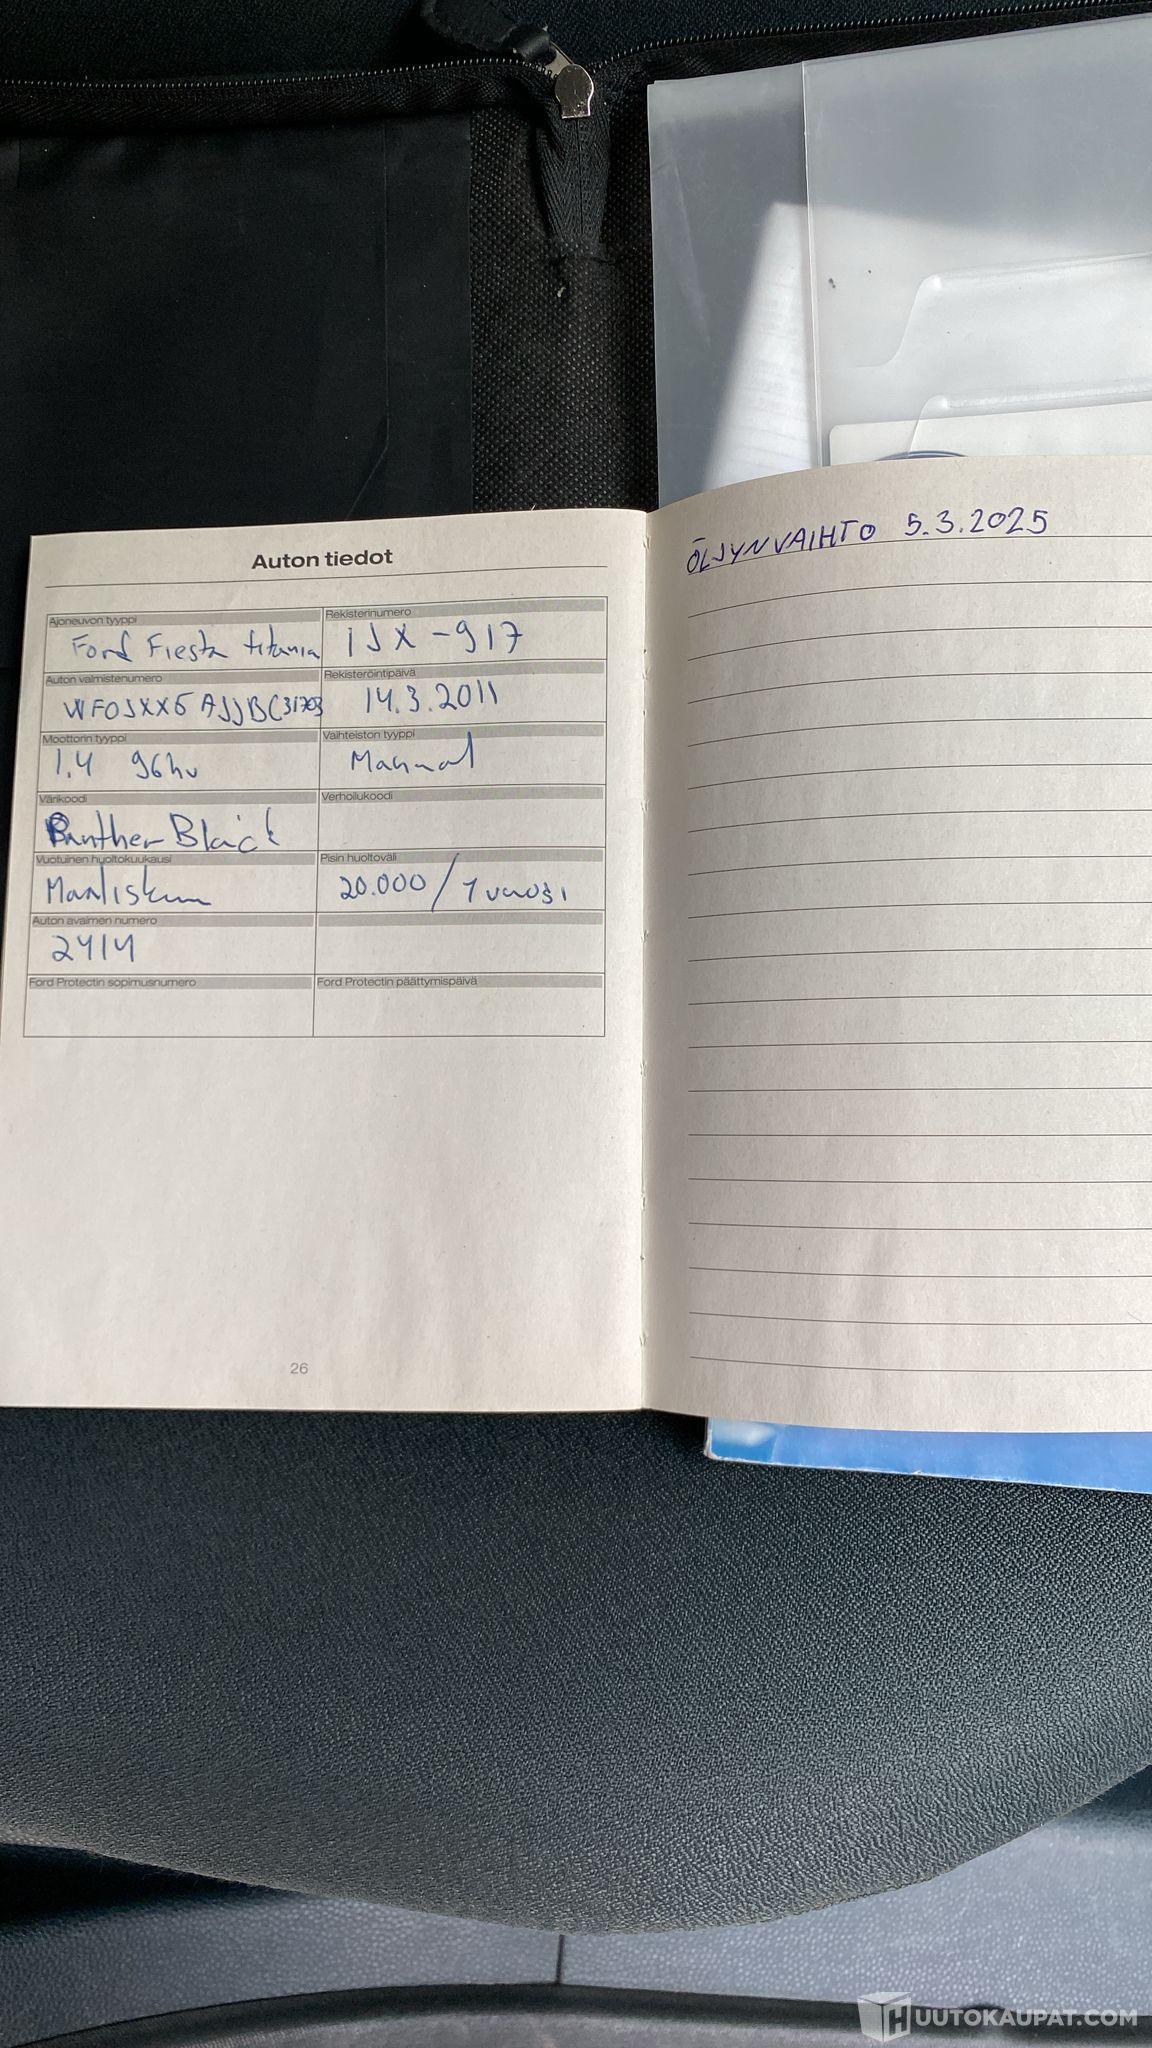 ÖLJYNVAIHTO 5.3.2025
Auton tiedot
Ajoneuvon tyyppi
Ford Fiesta titania
Rekisterinumero
IJX-917
Auton valmistenumero
WF0JXXGAJJBC31703
Rekisteröintipäivä
14.3.2011
Moottorin tyyppi
1.4 96hv
Vaihteiston tyyppi
Manual
Värikoodi
Panther Black
Verhoilukoodi
Vuotuinen huoltokuukausi
Maaliskuu
Pisin huoltoväli
20.000 / 1 vuosi
Auton avaimen numero
2414
Ford Protectin sopimusnumero
Ford Protectin päättymispäivä
26
HUUTOKAUPAT.COM